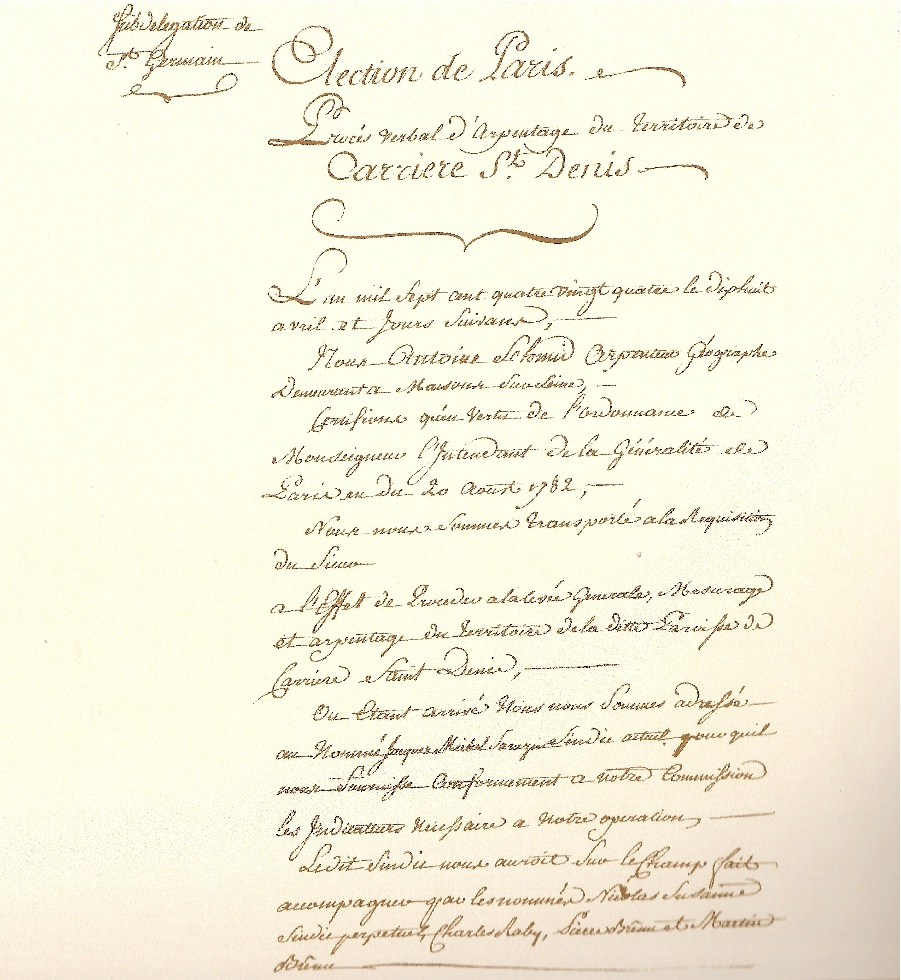 Subdelegation de
St. Germain
Election de Paris.
Procés verbal d'Arpentage du Territoire de
Carriere St. Denis
L'an mil Sept cent quatre vingt quatre le dixhuit
avril et Jours Suivans,
Nous Antoine Schmid Arpenteur Géographe
Demeurant a Maisons Sur Seine,
Certifions qu'en Vertu de l'ordonnance de
Monseigneur l'Intendant de la Généralité de
Paris en du 20 Aoust 1782,
Nous nous Sommes transporté a la Requisition
du Sieur
a l'Effet de Proceder a la levée Generale, Mesurage
et arpentage du Territoire de la ditte Paroisse de
Carriere Saint Denis,
Ou Etant arrivé Nous nous Sommes adressé
au Nommé Jacques Michel Sarazin Sindic actuel pour quil
nous Fournisse Conformement a notre Commission
les Indicateurs Necessaire a Notre operation,
Ledit Sindic nous auroit Sur le Champ fait
accompagner par les nommés Nicolas Susanne
Sindic perpetuel, Charles Raby, Pierre Brenu et Martin
Brenu